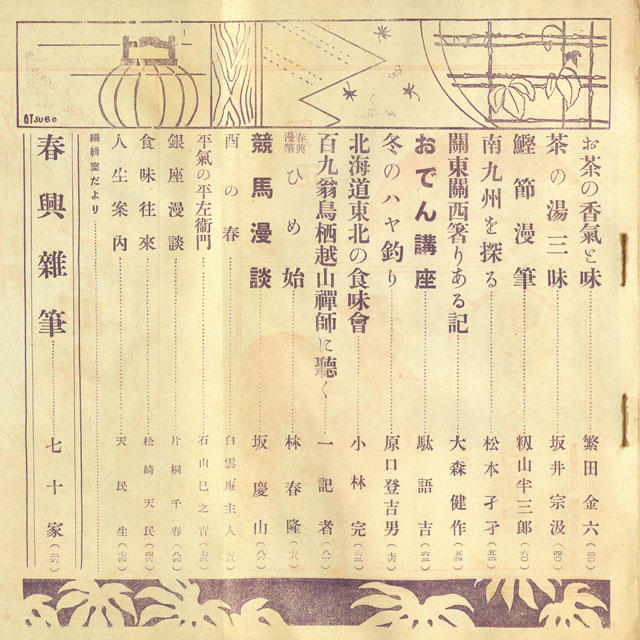 OTSUBO
お茶の香氣と味 繁田金六 (三〇)
茶の湯三昧 坂井宗汲 (四〇)
鰹節漫筆 籾山半三郎 (六〇)
南九州を探る 松本孑孑 (五二)
關東關西箸りある記 大森健作 (五四)
おでん講座 駄語吉 (六二)
冬のハヤ釣り 原口登吉男 (七六)
北海道東北の食味會 小林完
百九翁鳥栖越山禪師に聽く 一記者 (八一)
春興漫筆 ひめ始 林春隆
競馬漫談 坂慶山 (八六)
酉の春 白雲庵主人
平氣の平左衞門 石山巳之吉
銀座漫談 片桐千春 (八四)
食味往來 松崎天民 (四六)
人生案内 天民生 (七四)
編輯室だより
春興雜筆 七十家 (二六)